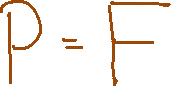 P = F